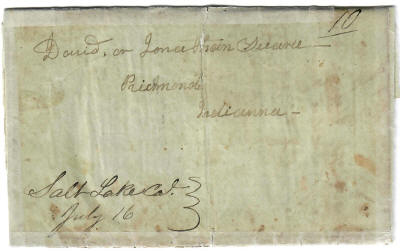 10
David, or Jonathain
Richmond
Indianna -
Salt Lake Cy.
July 16